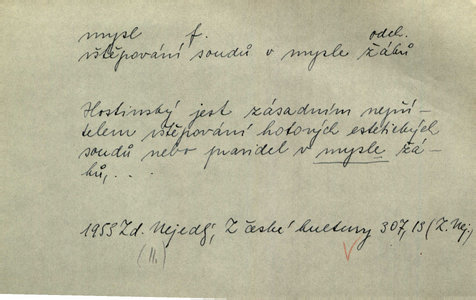 mysl f. odch.
vštěpování soudů v mysle žáků
Hostinský jest zásadním nepří-
telem vštěpování hotových estetických
soudů nebo pravidel v mysle žá-
ků, . . .
1953 Zd. Nejedlý, Z české kultury 307, 13 (Z. Nej.)